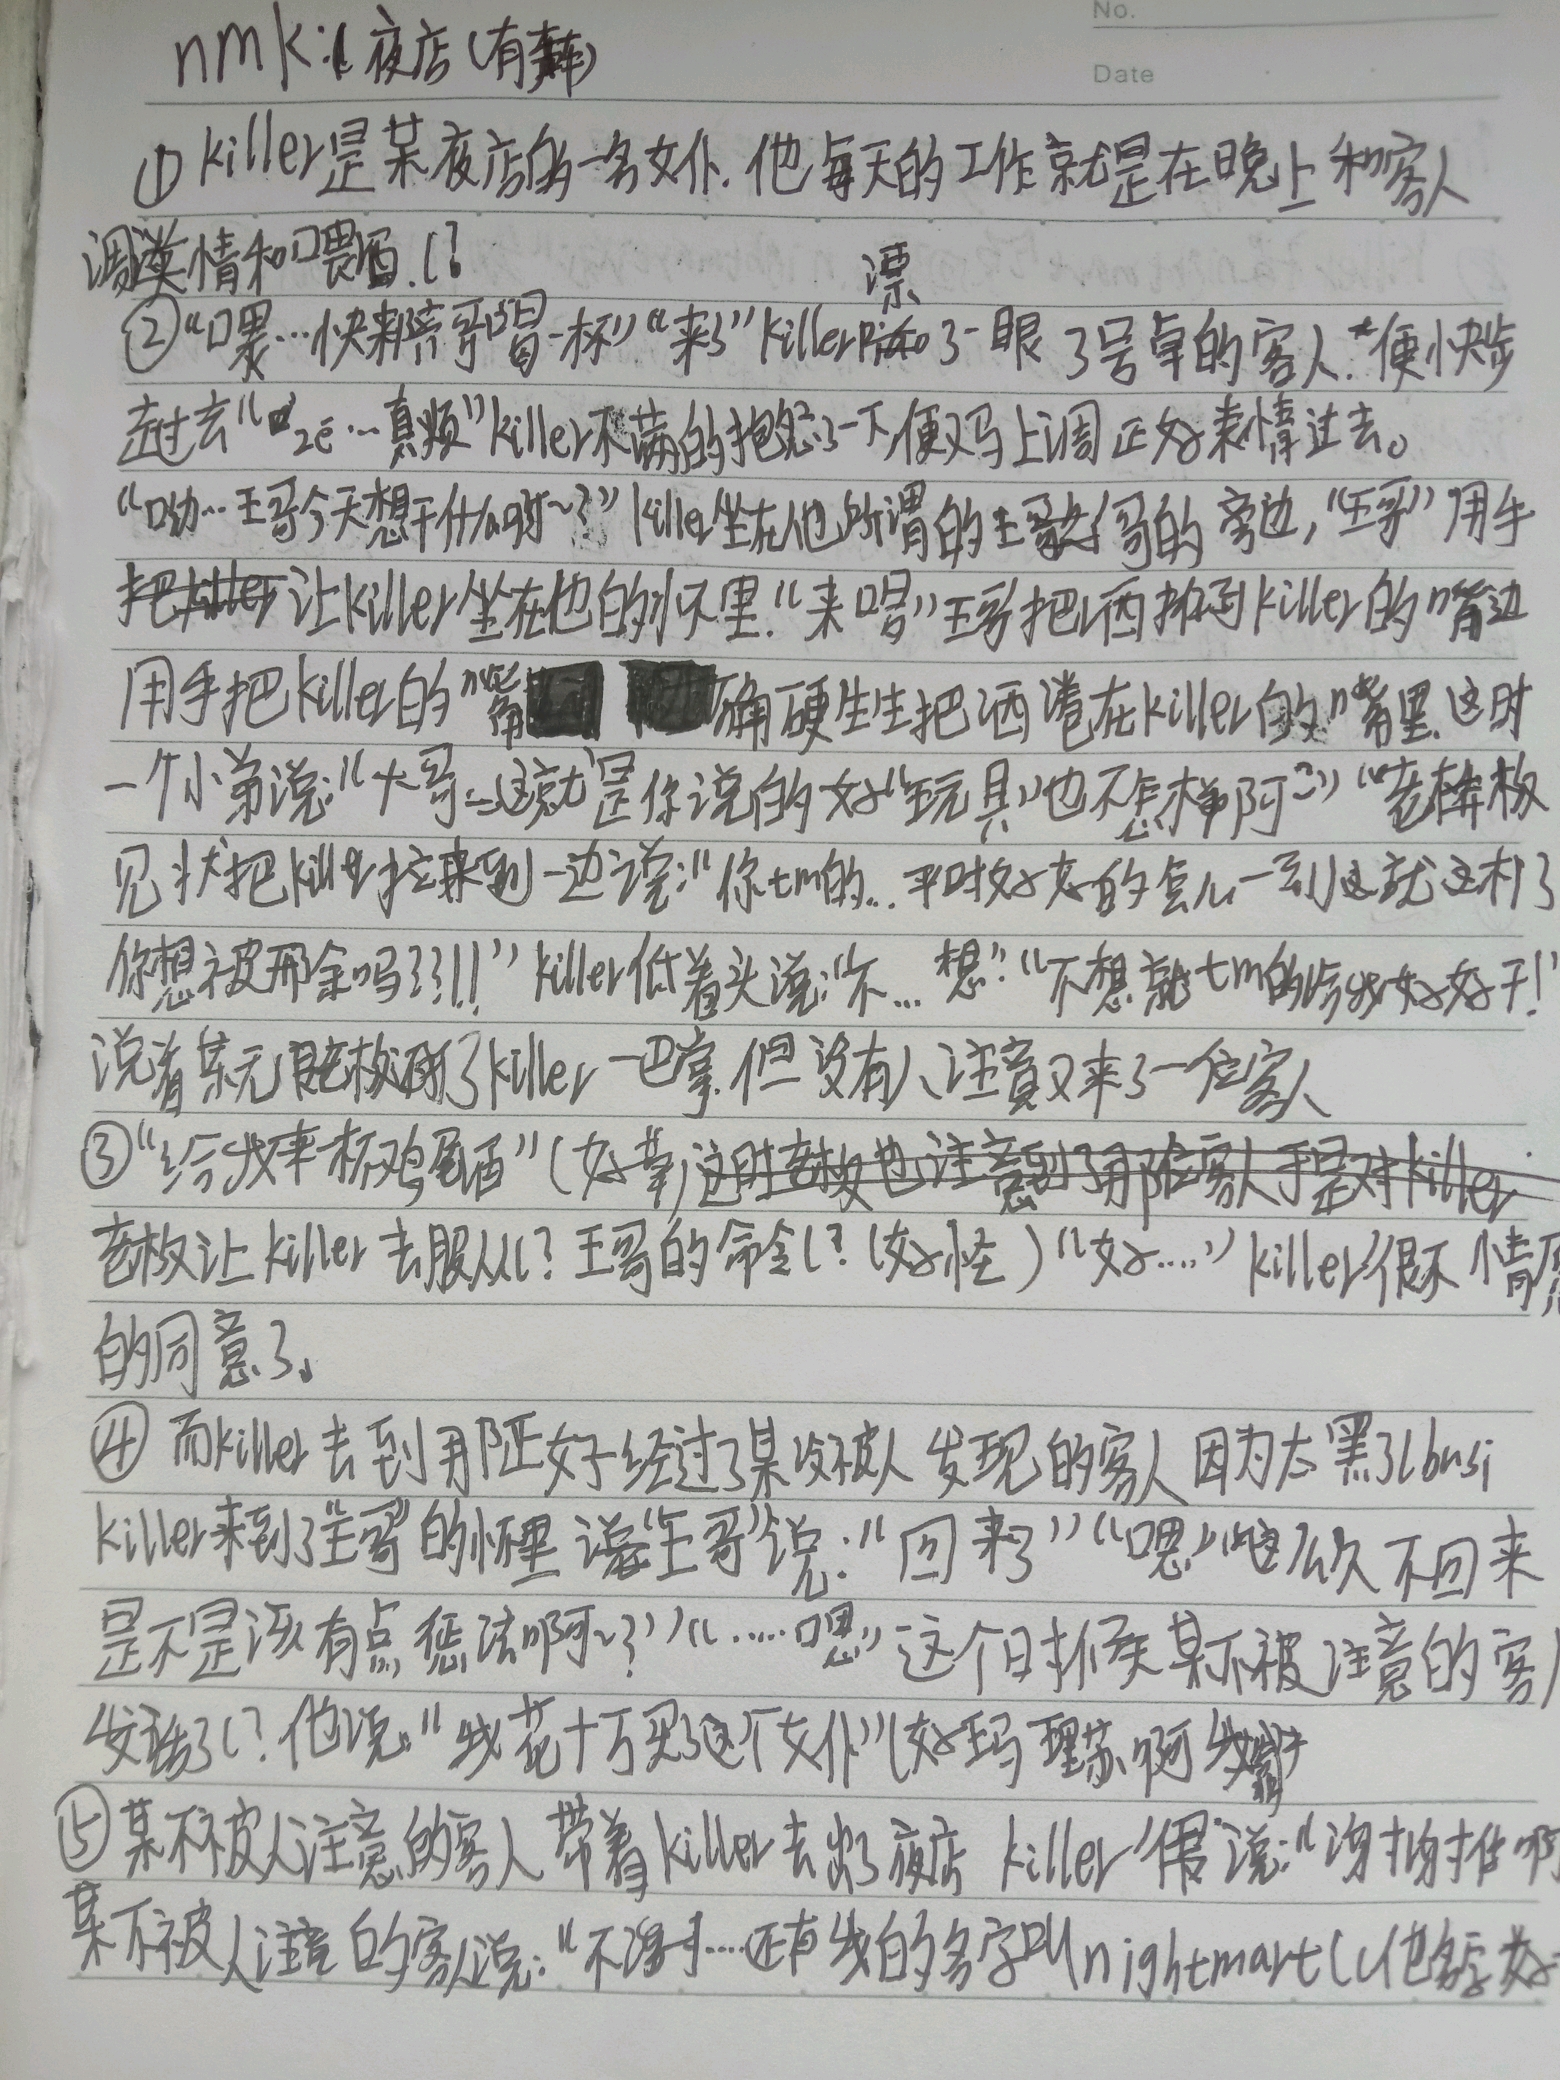 No.
Date
nmk: 夜店(有车)
①killer是某夜店的一名女仆.他每天的工作就是在晚上和客人
调情和喂酒.(?
②“嘿…快来陪哥喝一杯”“来了”killer漂了一眼3号桌的客人.便快步
走过去“zē…真烦”killer不满的抱怨了一下,便又马上调正好表情过去。
“呦…王哥今天想干什么呀~?”killer坐在他所谓的王哥的旁边,“王哥”用手
把killer让killer坐在他的怀里.“来喝”王哥把酒拿到killer的嘴边
用手把killer的嘴 硬生生把酒灌在killer的嘴里.这时
一个小弟说:“大哥…这就是你说的好“玩具”也不怎样阿?”“老板
见状把killer拉到一边说:“你tm的…平时好好的怎么一到这就这样了
你想被开除吗???!!”killer低着头说:“不…想”“不想就tm的给我好好干!”
说着某无良老板打了killer一巴掌.但没有人注意又来了一位客人
③“给我来一杯鸡尾酒”(好草)这时老板也注意到了那位客人于是对killer
老板让killer去服从(?王哥的命令(?(好怪)“好….”killer很不情愿
的同意了.
④而killer去到那正好经过了某没被人发现的客人因为太黑了(busi
killer来到了“王哥”的怀里“王哥”说:“回来了”“嗯”“这么久不回来
是不是该有点惩法啊~?”“……嗯”这个时候某不被注意的客人
发话了(?他说:“我花十万买了这个女仆”(好玛理苏啊
⑤某不被人注意的客人带着killer去出了夜店killer说:“谢谢 啊
某不被人注意的客人说:“不谢….还有我的名字叫nightmart((他名字好